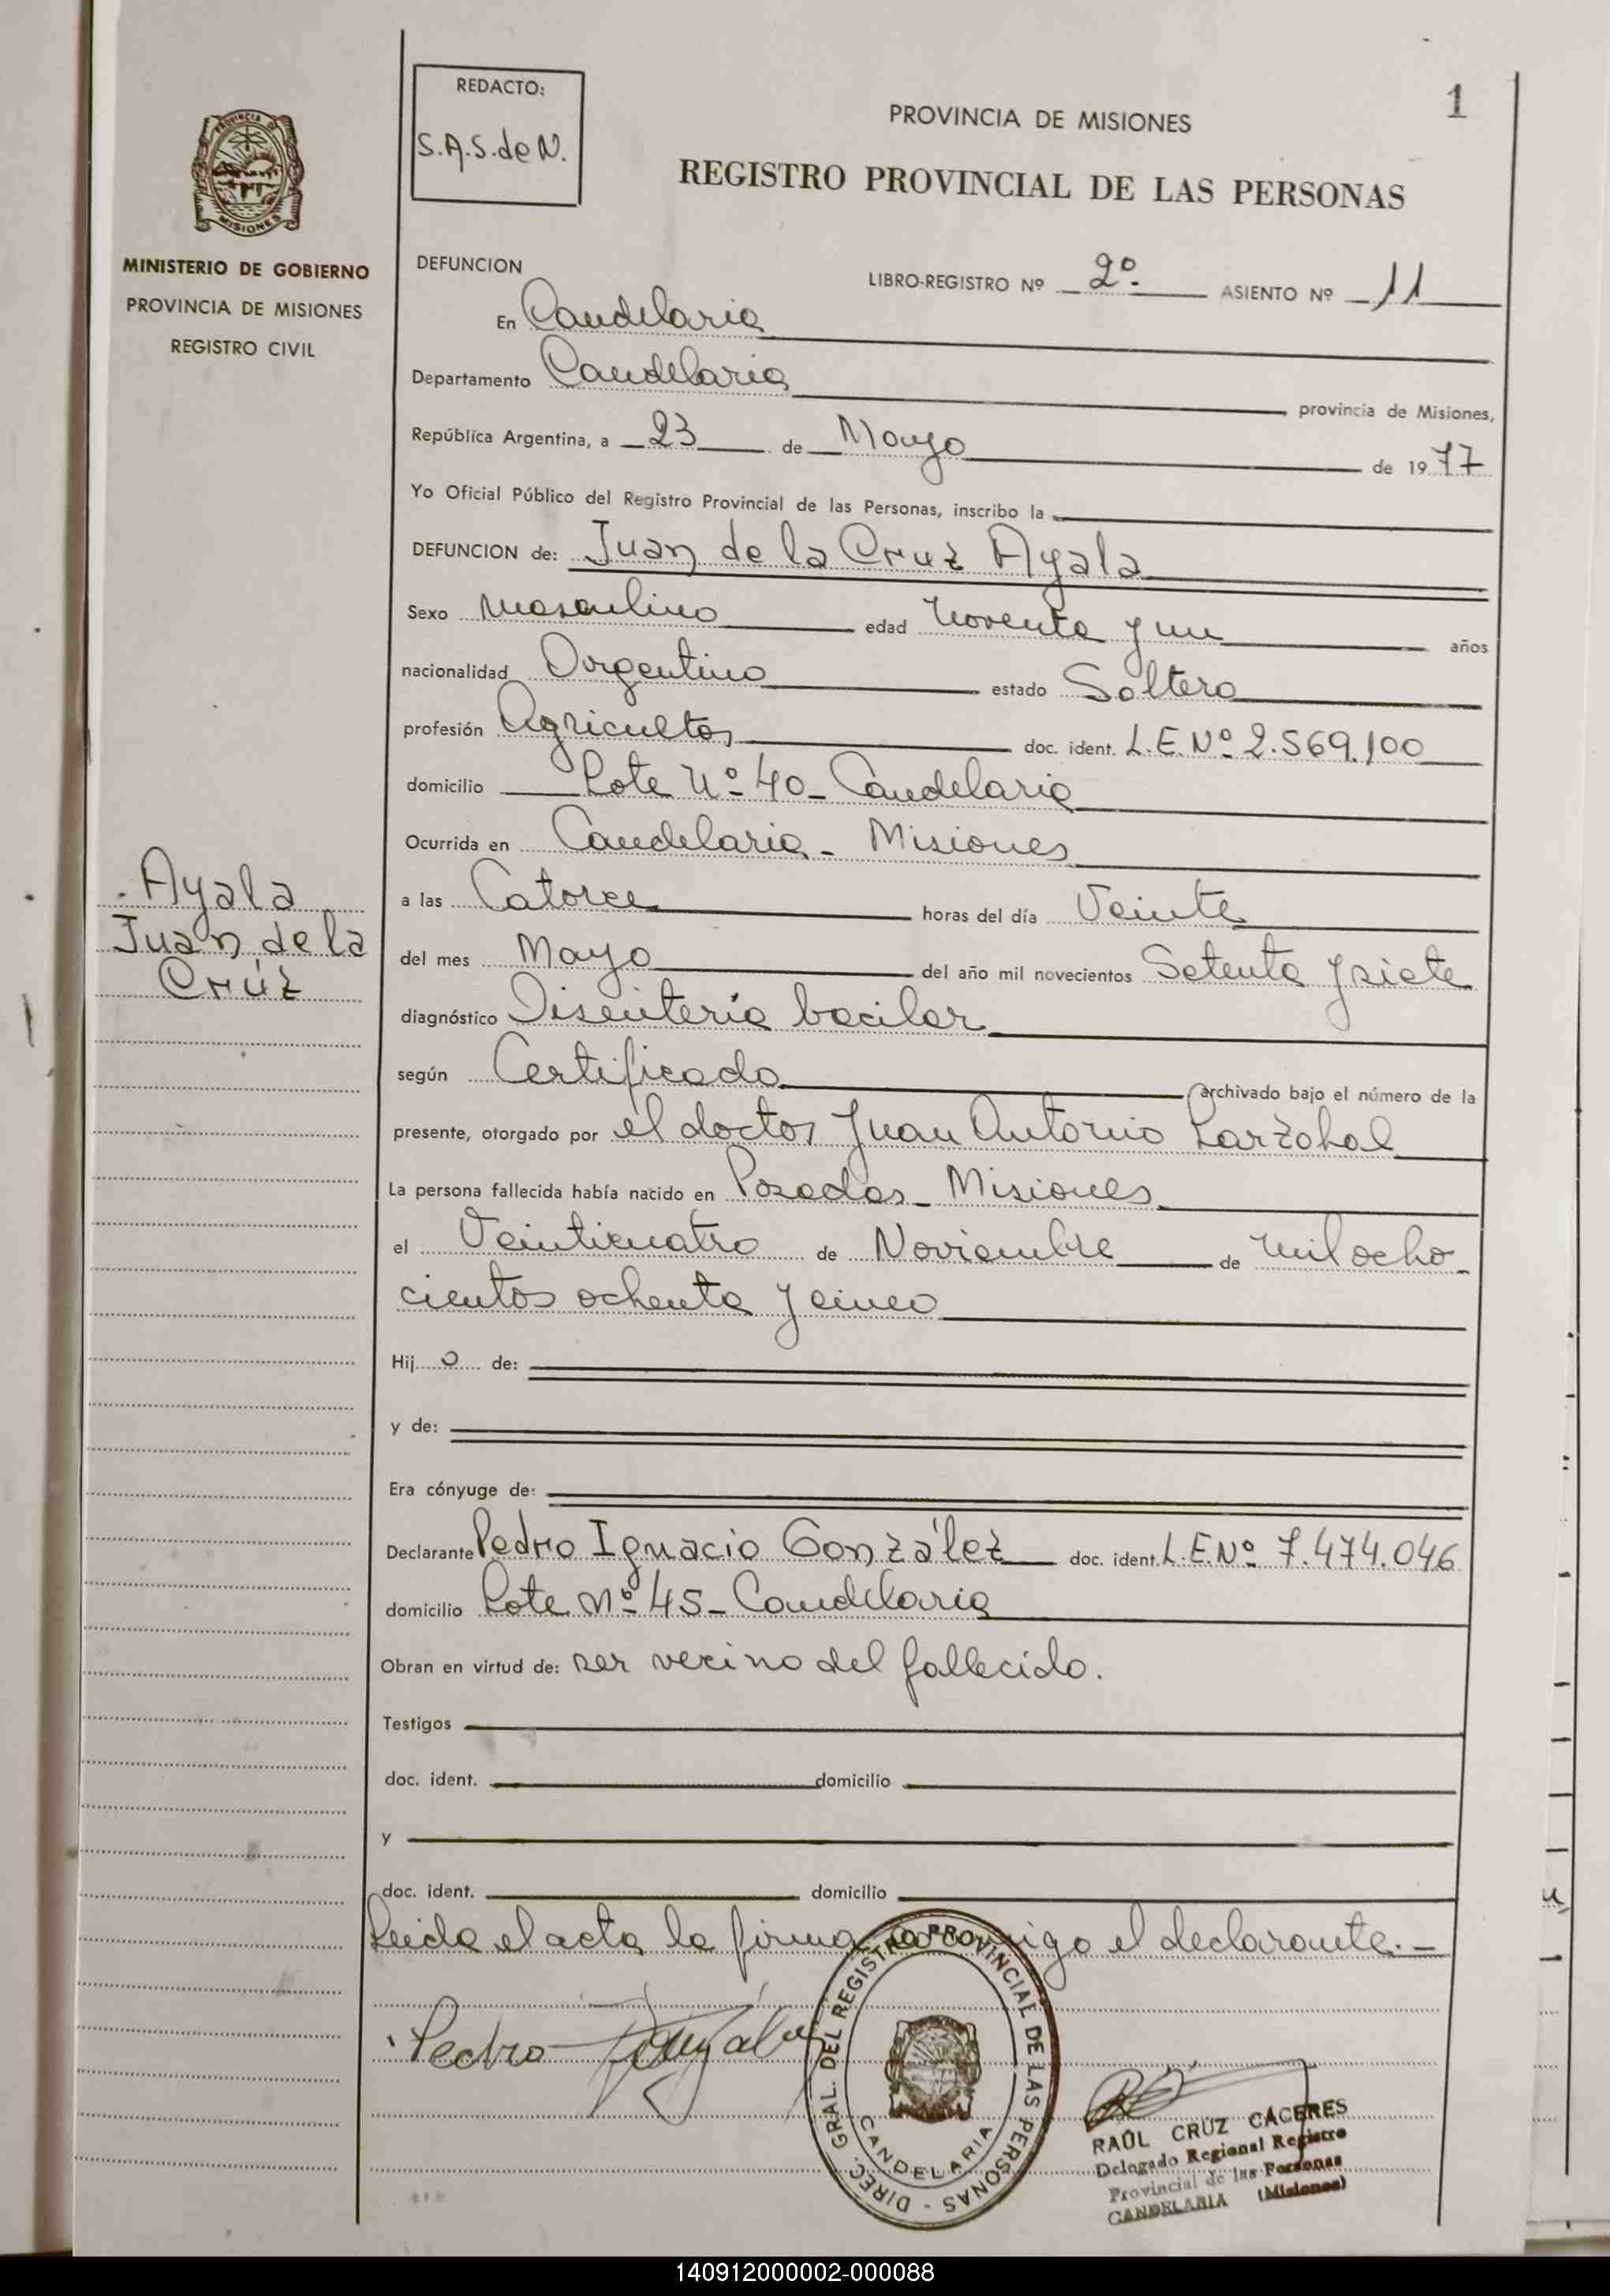 REDACTO:
S.A.S. de N.
1
PROVINCIA DE MISIONES
REGISTRO PROVINCIAL DE LAS PERSONAS
PROVINCIA DE
MISIONES
MINISTERIO DE GOBIERNO
PROVINCIA DE MISIONES
REGISTRO CIVIL
DEFUNCION
LIBRO-REGISTRO Nº 2º. ASIENTO Nº 11
En Candelaria
Departamento Candelaria provincia de Misiones,
República Argentina, a 23 de Mayo de 1977
Yo Oficial Público del Registro Provincial de las Personas, inscribo la
DEFUNCION de: Juan de la Cruz Ayala
Sexo masculino edad noventa y un años
nacionalidad Argentino estado Soltero
profesión Agricultor doc. ident. L.E. Nº 2.569.100
domicilio Lote Nº 40 - Candelaria
Ocurrida en Candelaria - Misiones
a las Catorce horas del día Veinte
del mes Mayo del año mil novecientos Setenta y siete
diagnóstico Disentería bacilar
según Certificado archivado bajo el número de la
presente, otorgado por el doctor Juan Antonio Larzabal
La persona fallecida había nacido en Posadas - Misiones
el Veinticuatro de Noviembre de mil ocho-
cientos ochenta y cinco
Hijo de:
y de:
Era cónyuge de:
Declarante Pedro Ignacio González doc. ident. L.E. Nº 7.474.046
domicilio Lote Nº 45 - Candelaria
Obran en virtud de: ser vecino del fallecido.
Testigos
doc. ident. domicilio
y
doc. ident. domicilio
Leida el acta la firma conmigo el declarante. -
Ayala
Juan de la
Crúz
Pedro González
DIREC. GRAL. DEL REGISTRO PROVINCIAL DE LAS PERSONAS -
CANDELARIA
RAÚL CRUZ CÁCERES
Delegado Regional Registro
Provincial de las Personas
CANDELARIA (Misiones)
140912000002-000088